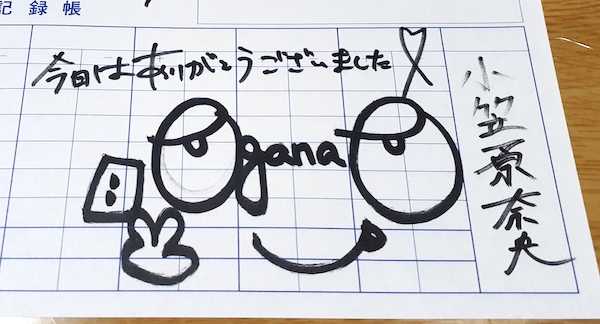 記録帳
今日はありがとうございました
Oganao
小笠原奈央